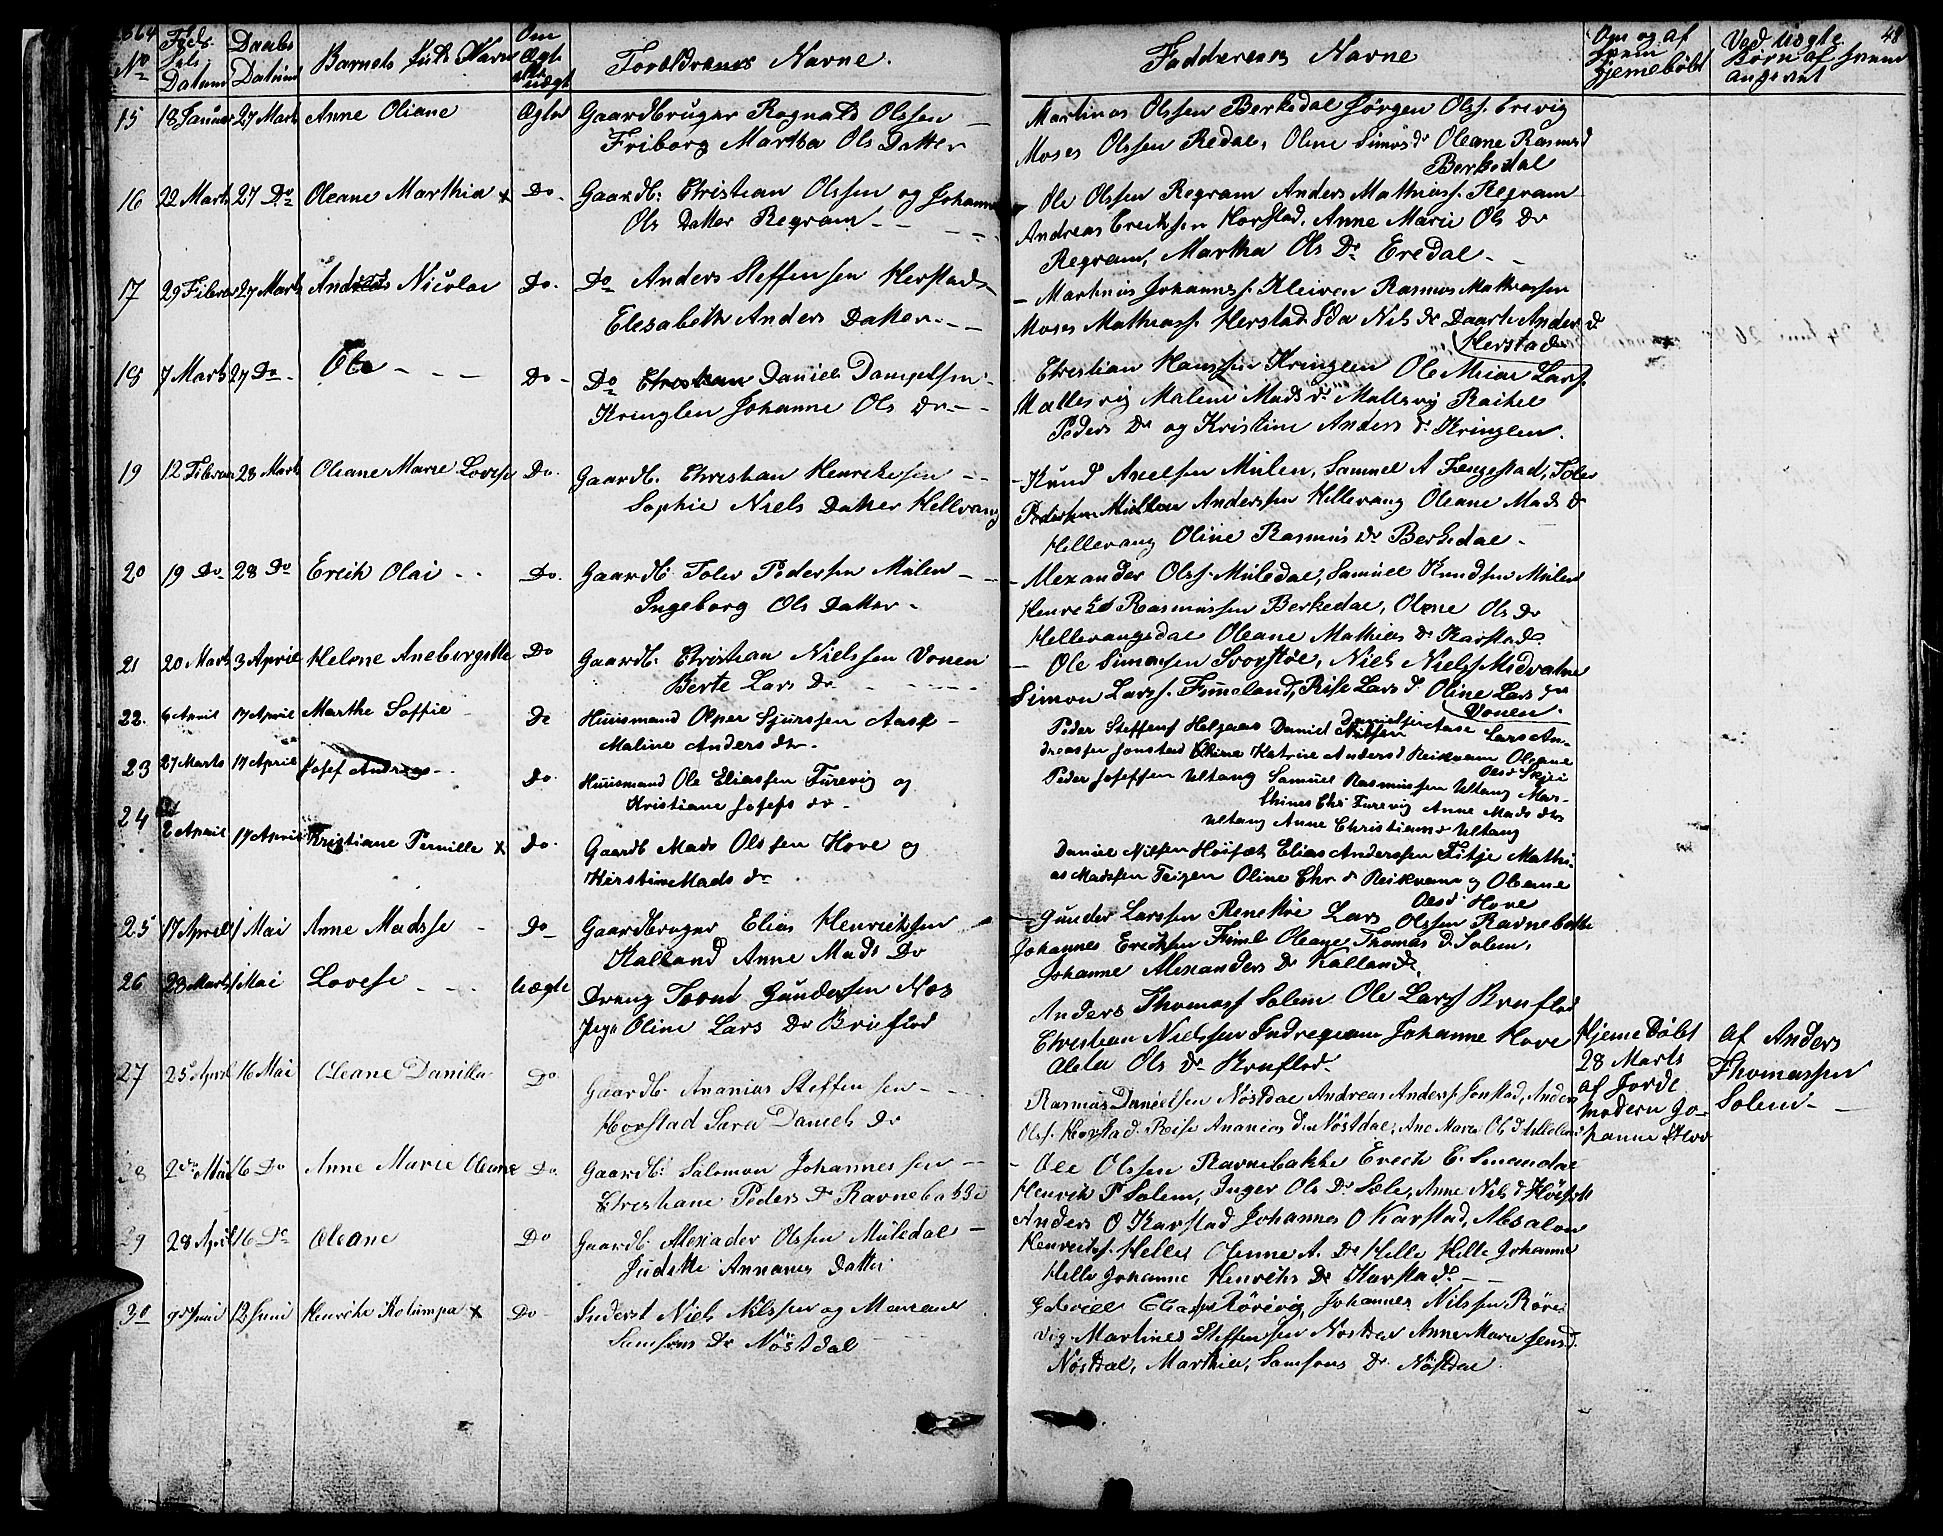 1864
No
Føds. Datum
Daabs Datum
Barnets fulde Navn
Om Ægte eller uægt
Forældrenes Navne.
Faddernes Navne
Om og af hvem hjemedøbt
Ved Uægte Børn af hvem angivet
48
15 18 Januar 27 Marts Anne Oliane Ægte Gaardbruger Rognald Olssen
Friborg Martha Ols Datter
Martinus Olssen Berkedal Jörgen Olss. Erevig
Moses Olssen Redal, Oline Simos Dr Oleane Rasmus d
Berkedal
16 22 Marts 27 Do Oleane Marthia x Do. Gaardb: Christian Olssen og Johanne
Ols Datter Regram
Ole Olssen Regram Anders Mathiass. Regram
Andreas Erickssen Horstad, Anne Marie Ols Dr
Regram, Martha Ols Dr Eredal
17 29 Februar 27 Marts Andreas Nicolai Do. Do Anders Steffensen Herstad
Elesabeth Anders Datter
Martinus Johanness. Kleiven Rasmus Mathiassen
Moses Mathiass. Herstad Eda Nils Dr Daarte Anders D
Herstad
18 7 Marts 27 Do Ole Do Do Daniel Danielsen
Kringlen Johanne Ols Dr
Christian Hanssen Kringlen Ole Miar Lars.
Mallesvig Malene Mads Dr Mallsvig Rachel
Peders Dr og Kristine Anders Dr Kringlen.
19 12 Februar 28 Marts Oleane Marie Lovise Do. Gaardb. Christian Henrikssen
Sophie Niels Datter Hellevang
Knud Axelsen Mulen, Samuel A Fengestad, Tolev
Pedersen Mulen Anderssen Hellevang Oleane Mads d
Hellevang Oline Rasmus Dr Berkedal
20 19 Do 28 Do Erick Olai Do. Gaardb. Tolev Pedersen Mulen
Ingeborg Ols Datter
Alexander Olss. Muledal, Samuel Knudsen Mulen
Rasmussen Berkedal, Olene Ols Dr
Hellevangsdal Oleane Mathias d Karstad
21 20 Marts 3 April Helene Do Gaardb. Christian Nielssen Vonen
Berte Lars Dr
Ole Simonsen Svorstøe, Niels Nielss. Midvatne
Simon Larss. Fimeland, Rise Lars d Oline Lars Dr
Vonen.
22. 6 April 17 April Marthe Soffie Do Huusmand Olper Sjurssen Aase
Maline Anders dr.
Peder Steffens Helgaas Daniel Danielsen Aase Lars An-
dreassen Jonstad Katrine Anders d Reikvam Oleane
Ols d Skjei
23 27 Marts 17 April Josef Andreas Do Huusmand Ole Eliassen Furevig og
Kristiane Josefs dr.
Peder Joseffsen Ultang Samuel Rasmussen Ultang Mar-
thines Chr Furevig Anne Mads dtr
Ultang Anne Christians d Ultang
24 2 April 17 April Kristiane Pernille x Do. Gaardb Mads Olssen Hove og
Kirstine Mads dr
Daniel Nilssen Höisæt Elias Anderssen Fitje Mathi-
as Madssen Teigen Oline Chr d Reikvam og Oleane
Ols d Hove
25 17 April 1 Mai Anne Madsse Do Gaardbruger Elias Henrikssen
Kalland Anne Mads Dr
Gunder Larssen Lars Olssen Ravnebakke
Johannes Ericksen Oleane Thomas D. Solem,
Johanne Alexanders Dr Kalland.
26 Marts 1 Mai Lovise Uægte Dreng Gundersen Moe
Pige Oline Lars Dr Brüeflod
Anders Thomass Solem Ole Larss Brüflod
Christian Nielssen Indregaam Johanne Hove
Aleta Ols Dr Brüflod
Hjeme Døbt
28 Marts
af Jorde
modern Jo-
hanne Hove
af Anders
Thomassen
Solem
27 25 April 16 Mai Oleane Danikka Do. Gaardb. Ananias Steffensen
Horstad Sara Daniels Dr
Rasmus Danielsen Nöstdal Andreas Anderss. Jonstad, Anders
Olss. Horstad. Reise Ananias D. Nöstdal, Ane Marie Ols d
28 2 Mai 16 Do Anne Marie Oleane Do. Gaardb. Salomon Johannessen
Christiane Peders Dr Ravnebakke
Ole Olssen Ravnebakke Erick E. Smendal
Henrik P Solem, Inger Ols Dr Sæle, Anne Niels d Höisæt
29 28 April 16 Do Oleane Do Gaardb. Alexader Olssen Muledal
Judethe Annanias Datter
Anders O Karstad Johannes O Karstad, Absalon
Henricks. Helle Olenne A. Dr Helle Helle Johanne
Helle Johanne Henriks Dr Karstad.
30 9 Juni 12 Juni Henrike Kolumpa x Do Inderst Niels Nilssen og Mariane
Samsons Dr Nöstdal
Gabriel Eliass Rörevig, Johannes Nilssen Röre
vig Martines Steffensen Nöstdal Anne Marie Jens d.
Nöstdal, Marthie, Samsons Dr Nöstdal.